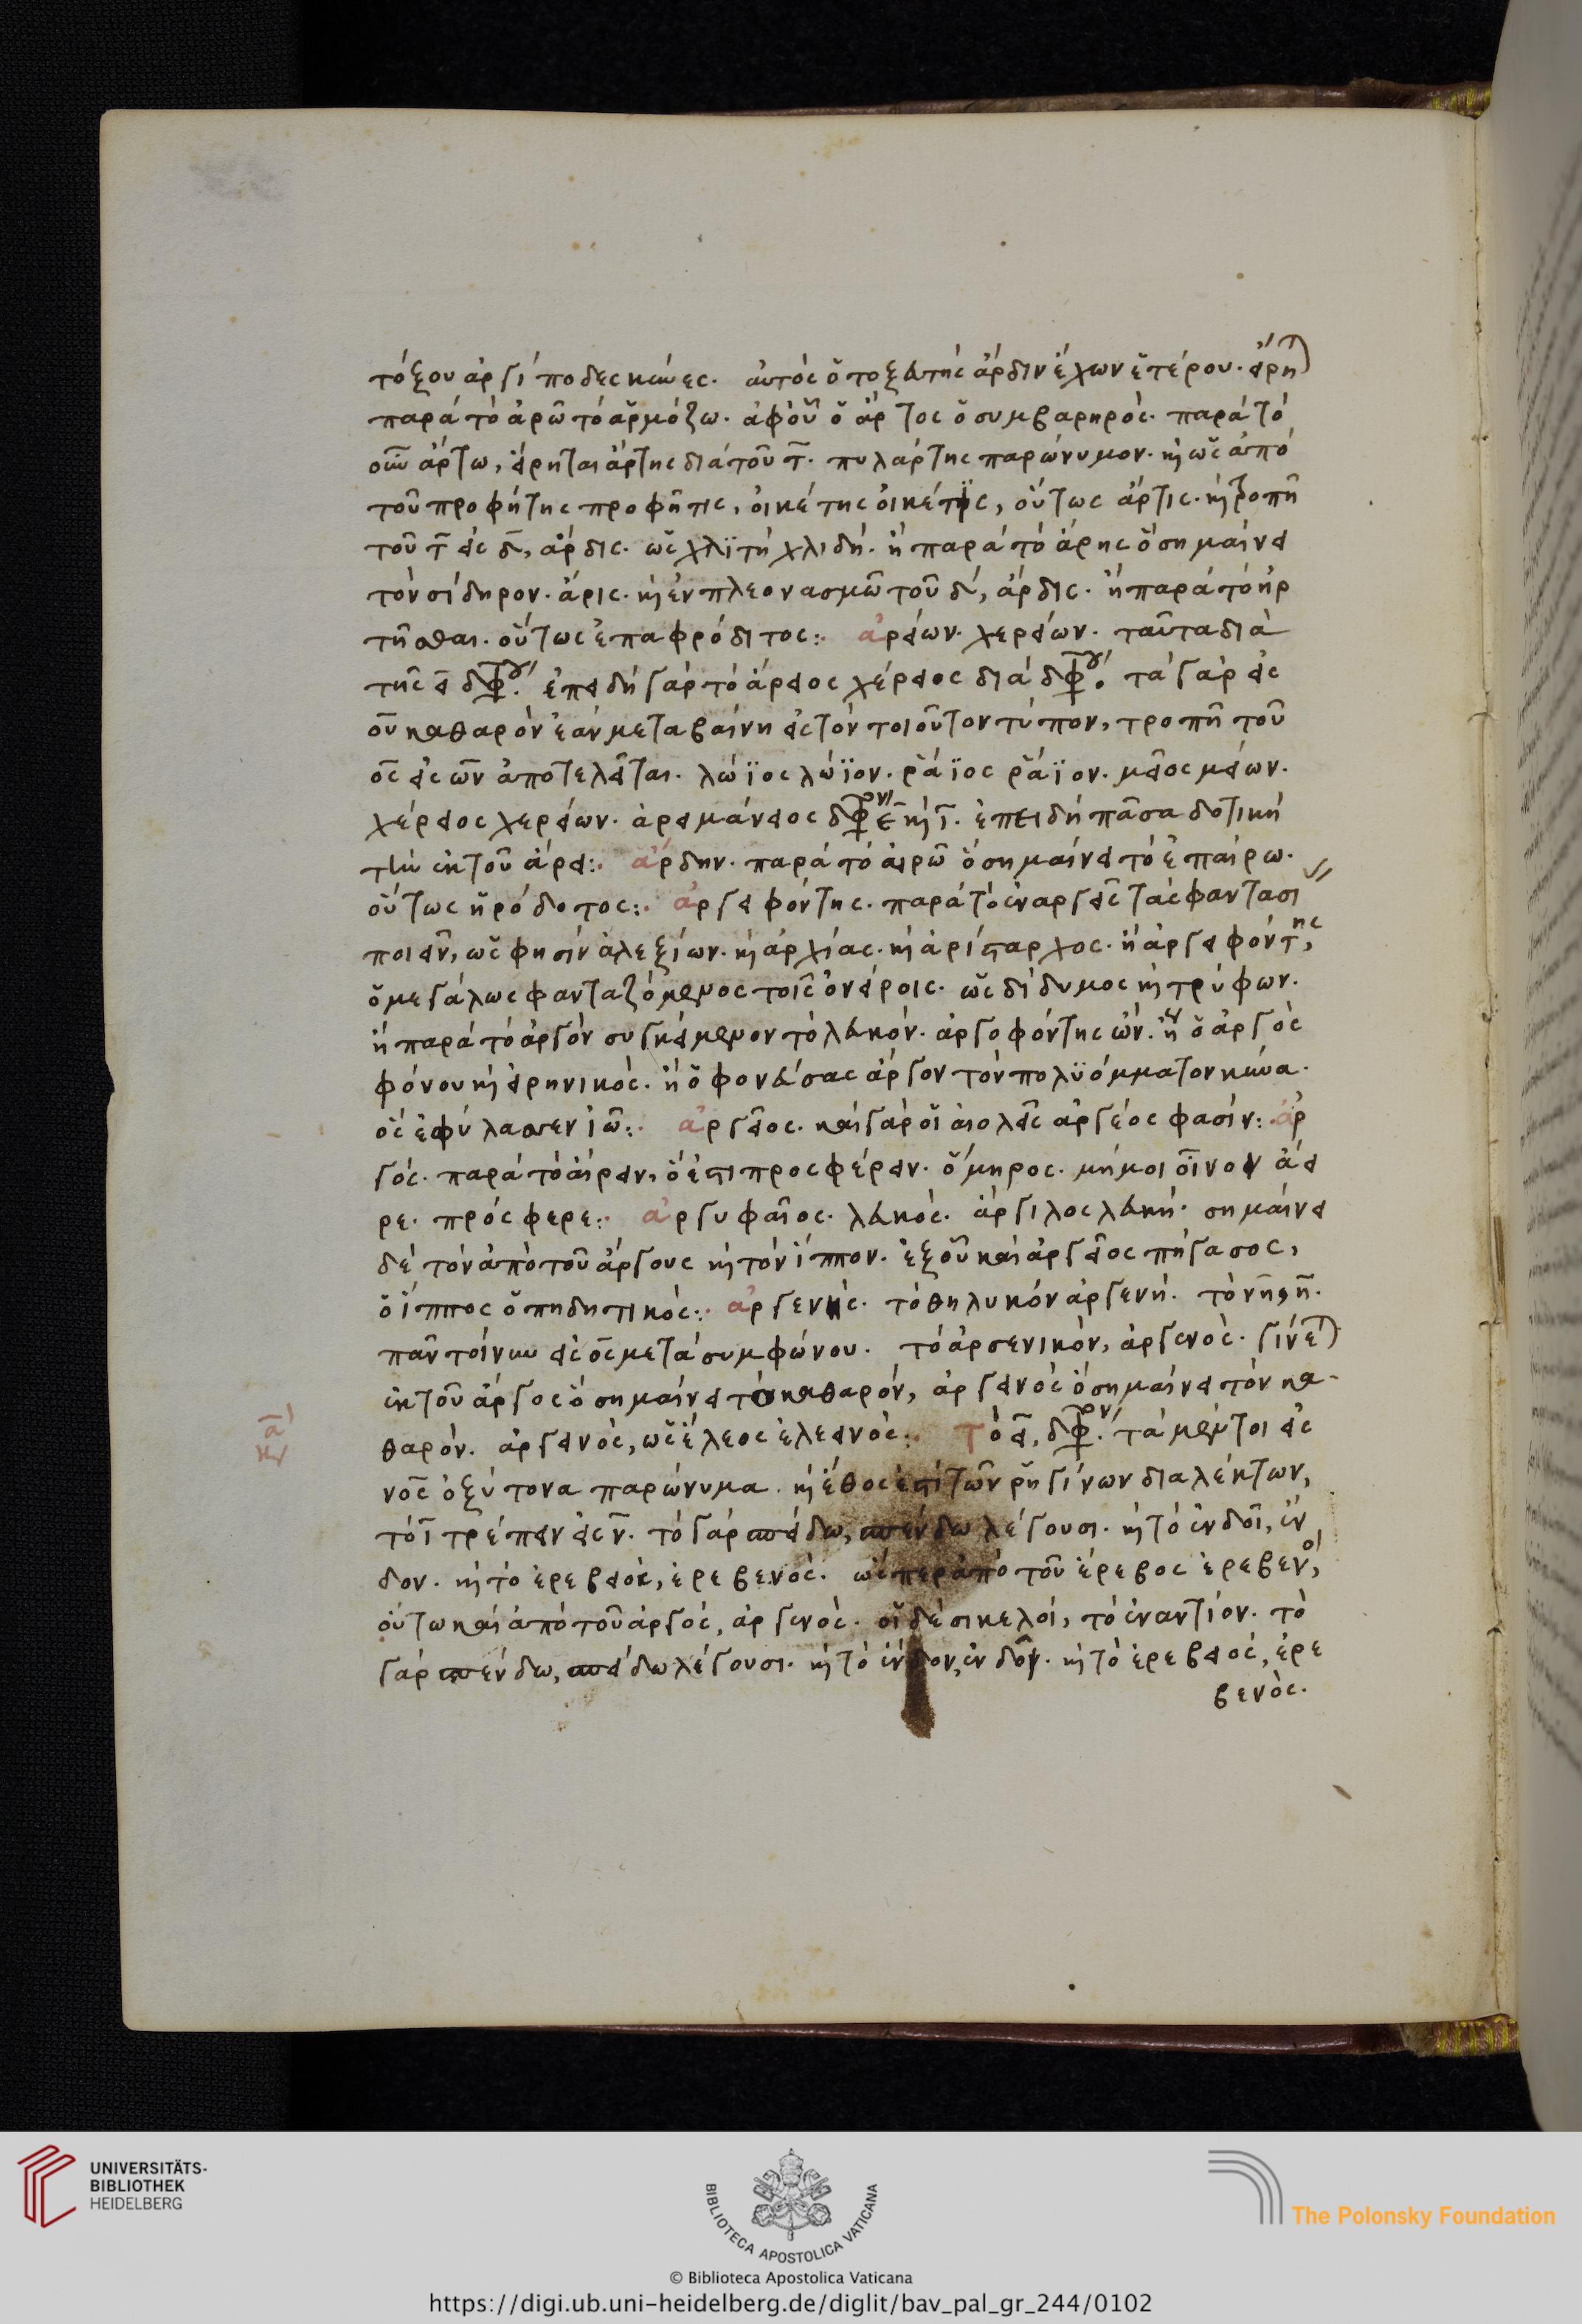 τόξου ἀργίποδες κύνες. αὐτὸς ὁ τοξευτὴς ἄρδιν ἔχων ἑτέρου. εἴρη)
παρὰ τὸ ἀρῶ τὸ ἁρμόζω. ἀφ' οὗ ὁ ἄρτος ὁ συμβαρηρός. παρὰ τὸ
οὖν ἄρτω, εἴρηται ἄρτης διὰ τοῦ τ̅. πυλάρτης παρώνυμον. κ̣ ὡς ἀπὸ
τοῦ προφήτης προφῆτις, οἰκέτης οἰκέτις, οὕτως ἄρτις. κ̣ τροπῇ
τοῦ τ̅ εἰς δ̅, ἄρδις. ὡς χλϊτὴ χλιδή. ἢ παρὰ τὸ ἄρης ὃ σημαίνει
τὸν σίδηρον. ἄρις. κ̣ ἐν πλεονασμῶ τοῦ δ̅, ἄρδις. ἢ παρὰ τὸ ἠρ
τῆσθαι. οὕτως ἐπαφρόδιτος:. ἀρείων. χερείων. ταῦτα διὰ
τῆς ει δφγ'. ἐπειδὴ γὰρ τὸ ἄρειος χέρειος διὰ δφγ'. τὰ γὰρ εἰς
ος καθαρὸν ἐὰν μεταβαίνη εἰς τὸν τοιοῦτον τύπον, τροπῇ τοῦ
ος εἰς ων ἀποτελεῖται. λώϊος λώϊον. ῥάϊος ῥάϊον. μεῖος μείων.
χέρειος χερείων. ἀρειμάνειος δφον' ε̅ κ̣ ι̅. ἐπειδὴ πᾶσα δοτικὴ
τὴν ἐκ τοῦ ἄρει:. ἄρδην. παρὰ τὸ αἰρῶ ὃ σημαίνει τὸ ἐπαίρω.
οὕτως ἡρόδοτος:. ἀργειφόντης. παρὰ τὸ ἐναργεῖς τὰς φαντασι
ποιεῖν, ὡς φησὶν ἀλεξίων. κ̣ ἀρχίας. κ̣ ἀρίσταρχος. ἢ ἀργειφόντης,
ὁ μεγάλως φανταζόμενος τοῖς ὀνείροις. ὡς δίδυμος κ̣ τρύφων.
ἢ παρὰ τὸ ἀργὸν συγκείμενον τὸ λευκόν. ἀργοφόντης ὤν. ἢ ὁ ἀργὸς
φόνου κ̣ εἰρηνικός. ἢ ὁ φονεύσας ἄργον τὸν πολϋόμματον κύνα.
ὃς ἐφύλασσεν ἰῶ:. ἀργεῖος. καὶ γὰρ οἱ αἰολεῖς ἀργέος φασίν:. ἀρ
γός. παρὰ τὸ αἴρειν, ὅ ἐστι προσφέρειν. ὅμηρος. μή μοι οἶνον ἄει
ρε. πρόσφερε:. ἀργυφαῖος. λευκός. ἄργιλος λευκή. σημαίνει
δὲ τὸν ἀπὸ τοῦ ἄργους κ̣ τὸν ἵππον. ἐξ οὗ καὶ ἀργεῖος πήγασος,
ὁ ἵππος ὁ πηδητικός:. ἀργενῆς. τὸ θηλυκὸν ἀργενή. τὸ νη η̅.
πᾶν τοίνυν εἰς ος μετὰ συμφώνου. τὸ ἀρσενικὸν, ἀργενός. γίνε)
ἐκ τοῦ ἄργος ὃ σημαίνει τὸ καθαρόν, ἀργεινὸς ὃ σημαίνει τὸν κα-
θαρόν. ἀργεινὸς, ὡς ἔλεος ἐλεεινός:. Τὸ ει, δφον'. τὰ μέντοι εἰς
νος ὀξύτονα παρώνυμα. κ̣ ἔθος ἐστὶ τῶν ῥηγίνων διαλέκτων,
τὸ ι̅ τρέπειν εἰς ν̅. τὸ γὰρ σπείδω, σπένδω λέγουσι. κ̣ τὸ ἐνδοῖ, ἔν
δον. κ̣ τὸ ἐρεβειός, ἐρεβενός. ὥσπερ ἀπὸ τοῦ ἔρεβος ἐρεβενό,
οὕτω καὶ ἀπὸ τοῦ ἀργός, ἀργενός. οἱ δὲ σικελοί, τὸ ἐναντίον. τὸ
γὰρ σπένδω, σπείδω λέγουσι. κ̣ τὸ ἔνδον, ἐνδοῖ. κ̣ τὸ ἐρεβειός, ἐρε
βενός.
κ̅α̅
UNIVERSITÄTS-
BIBLIOTHEK
HEIDELBERG
BIBLIOTECA APOSTOLICA VATICANA
The Polonsky Foundation
© Biblioteca Apostolica Vaticana
https://digi.ub.uni-heidelberg.de/diglit/bav_pal_gr_244/0102